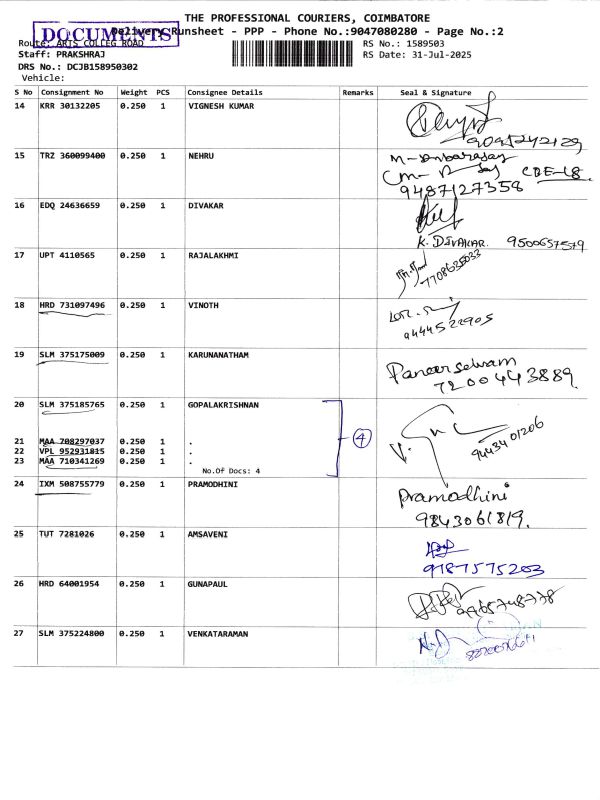 THE PROFESSIONAL COURIERS, COIMBATORE
DOCUMENTS
Delivery Runsheet - PPP - Phone No.:9047080280 - Page No.:2
Route: ARTS COLLEG ROAD
RS No.: 1589503
Staff: PRAKSHRAJ
RS Date: 31-Jul-2025
DRS No.: DCJB158950302
Vehicle:
S No Consignment No Weight PCS Consignee Details Remarks Seal & Signature
14 KRR 30132205 0.250 1 VIGNESH KUMAR
15 TRZ 360099400 0.250 1 NEHRU
CBE-18.
9487127358
16 EDQ 24636659 0.250 1 DIVAKAR
K. DIVAKAR. 9500657579
17 UPT 4110565 0.250 1 RAJALAKHMI
7708635033
18 HRD 731097496 0.250 1 VINOTH
9444522905
19 SLM 375175009 0.250 1 KARUNANATHAM
Panneerselvam
7200443889.
20 SLM 375185765 0.250 1 GOPALAKRISHNAN
4
9443401206
21 MAA 708297037 0.250 1 .
22 VPL 952931815 0.250 1 .
23 MAA 710341269 0.250 1 .
No.Of Docs: 4
24 IXM 508755779 0.250 1 PRAMODHINI
Pramodhini
9843061819.
25 TUT 7281026 0.250 1 AMSAVENI
9787575203
26 HRD 64001954 0.250 1 GUNAPAUL
9965748778
27 SLM 375224800 0.250 1 VENKATARAMAN